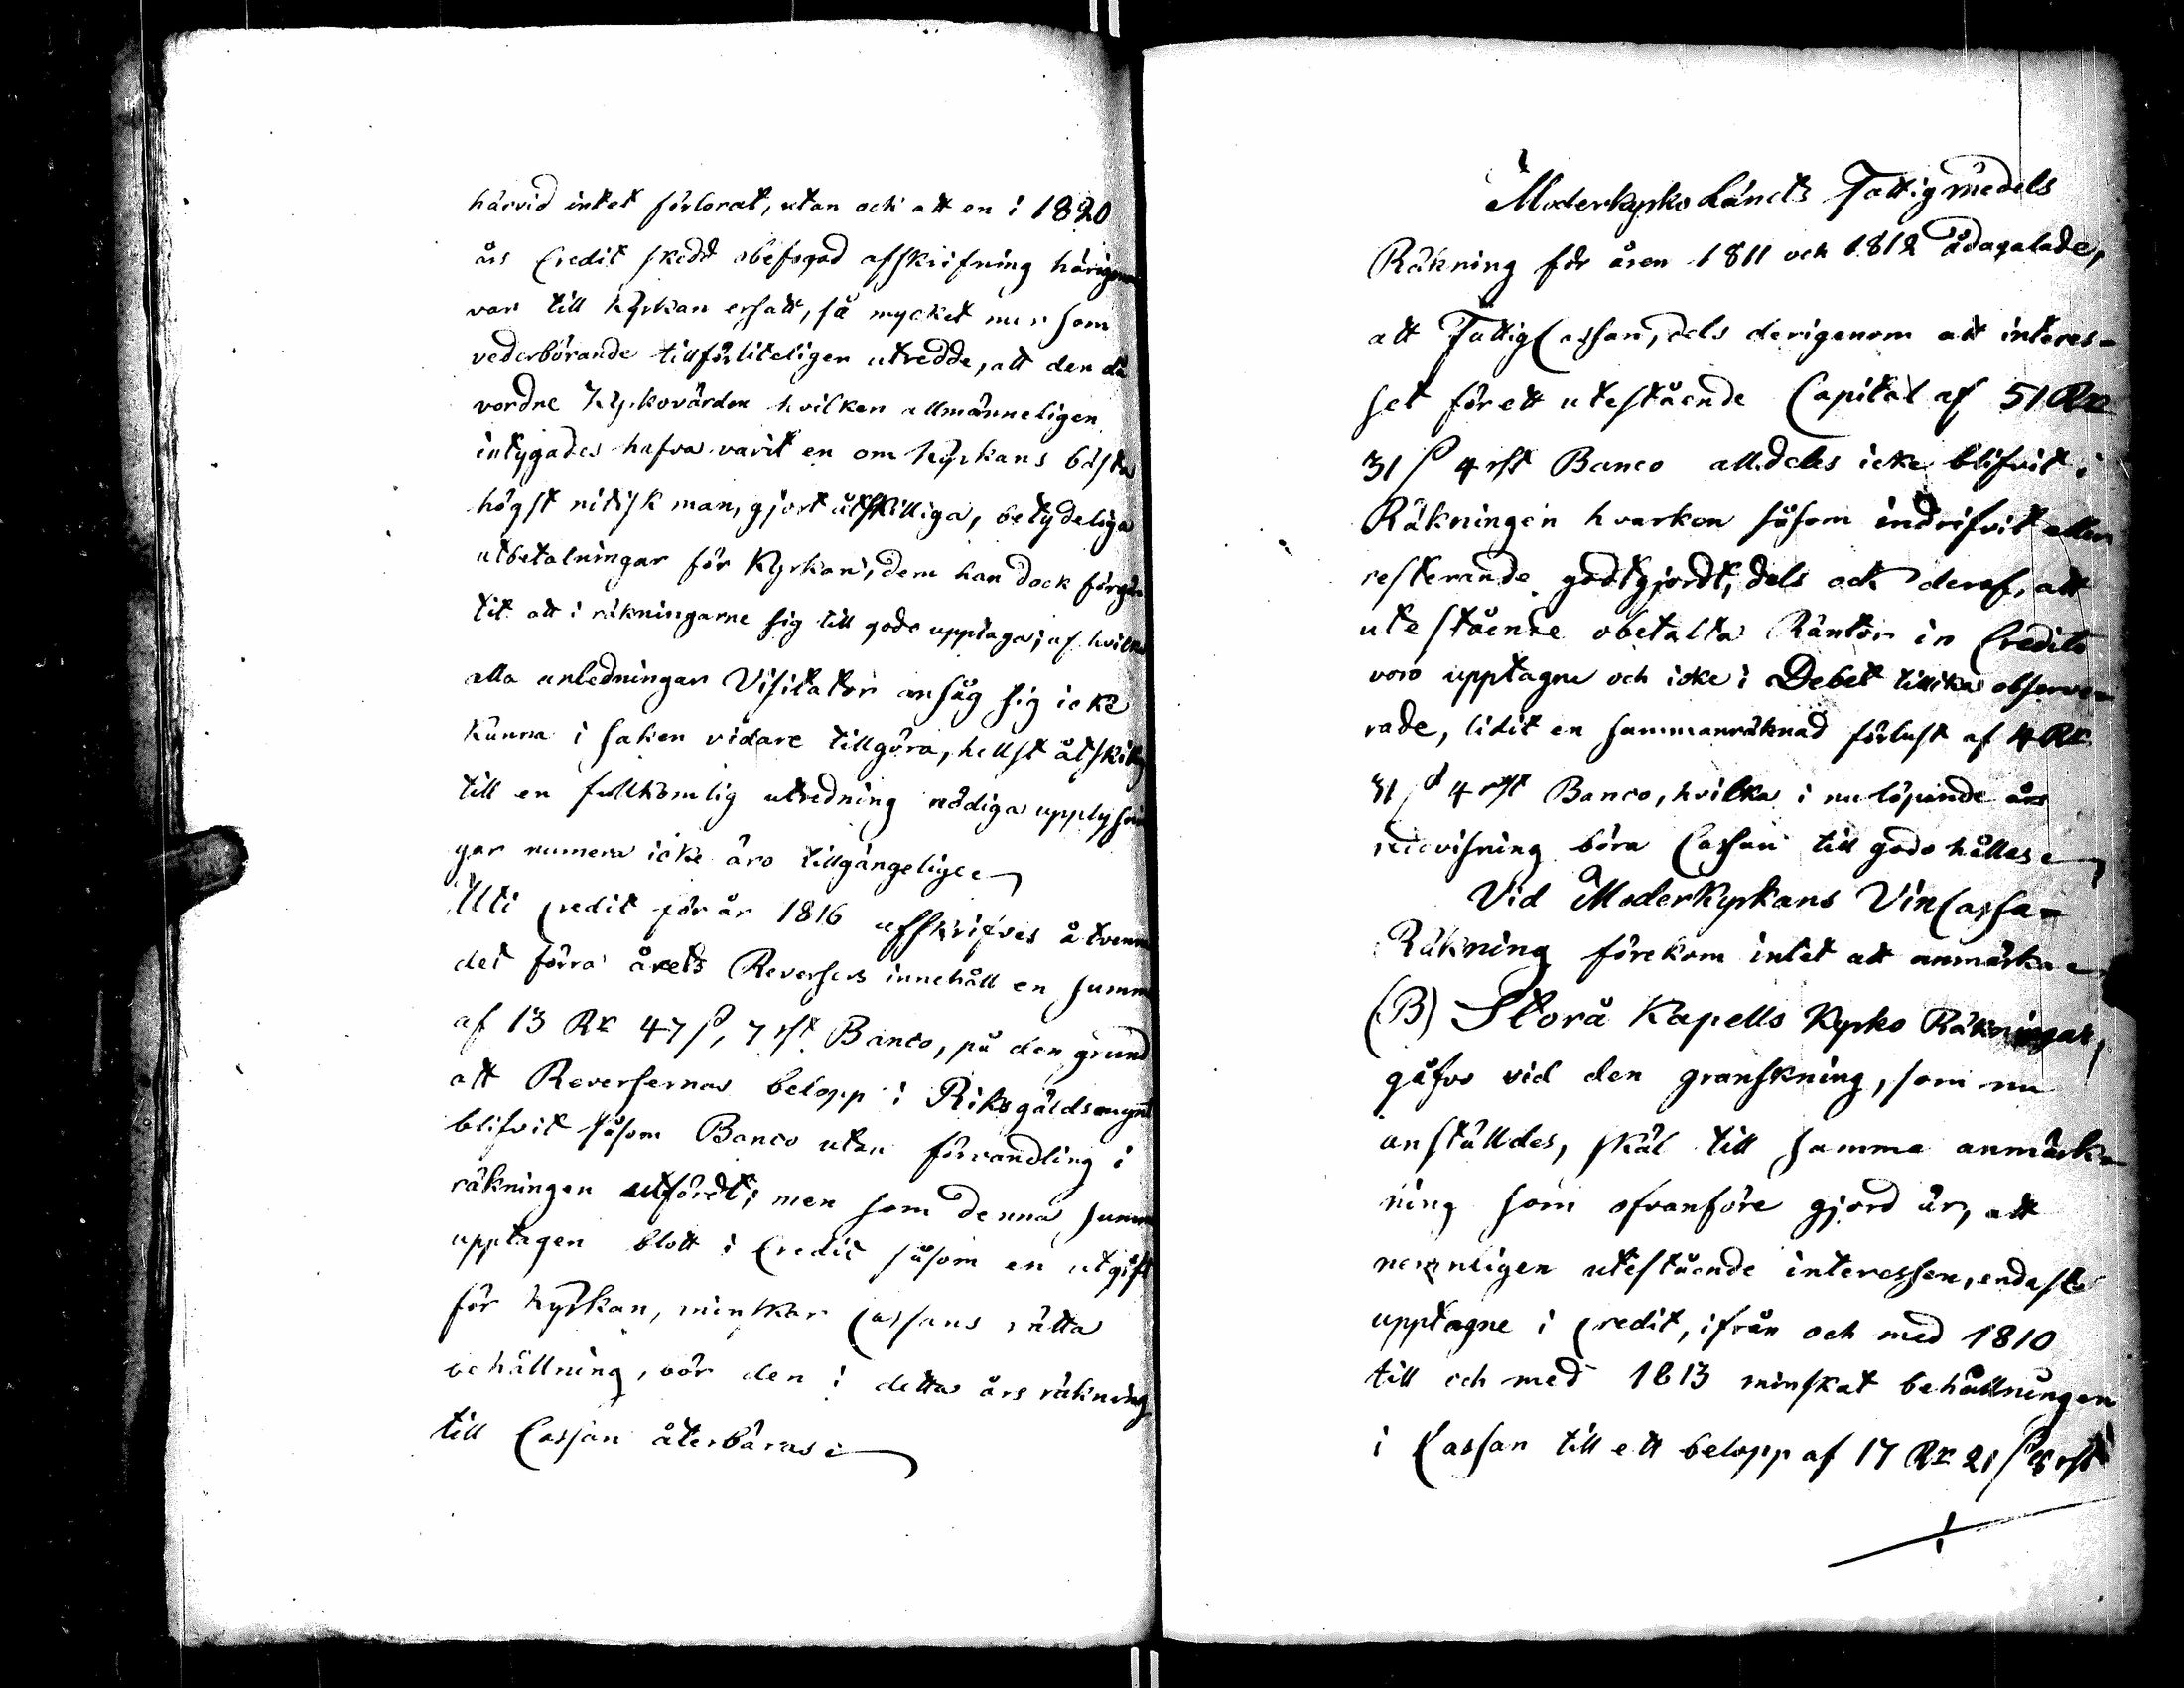 härvid intet förlorat, utan och att en i 1820
års Credit skedd obefogad afskrifning härigenom
var till Kyrkan ersatt, så mycket mer som
vederbörande tillförliteligen utredde, att den då
vordne Kyrkovärden hvilken allmänneligen
intygades hafva varit en om Kyrkans bästa
högst nitisk man, gjort åtskilliga, betydeliga
utbetalningar för Kyrkan, dem han dock förgä-
tit att i räkningarne sig till godo upptaga; af hvilka
alla anledningar Visitator ansåg sig icke
kunna i saken vidare tillgöra, hellst åtskilliga
till en fullkomlig utredning nödiga upplysnin
gar numera icke äro tillgängelige
Uti Credit för år 1816 affskrifves å tvenne
det förra årets Reversers innehåll en summa
af 13 Rr 47 ß, 7 rst. Banco, på den grund
att Reversernas belopp i Riksgäldsmynt
blifvit såsom Banco utan förvandling i
räkningen utfördt; men som denna summa
upptagen blott i Credit såsom en utgift
för Kyrkan, minskar Cassans rätta
behållning, bör den i detta års räkning
till Cassan återbäras
Moderkyrko Länets Fattigmedels
Räkning för åren 1811 och 1812 ådagalade,
att FattigCassan, dels derigenom att interes-
set för ett utestående Capital af 51 Rr
31 ß 4 rst Banco alldeles icke blifvit i
Räkningen hvarken såsom indrifvit eller
resterande godtgjordt, dels ock deraf, att
utestående obetalta Räntor in Credito
voro upptagne och icke i Debet tillika observe-
rade, lidit en sammanräknad förlust af 4 Rr
31 ß 4 rst Banco, hvilka i nu löpande års
redovisning böra Cassan till godo hållas
Vid Moderkyrkans VinCassa-
Räkning förekom intet att anmärka
(B) Storå Kapells Kyrko Räkningar,
gåfvo vid den granskning, som nu
anställdes, skäl till samma anmärk-
ning som ofvanföre gjord är, att
nemnligen utestående interessen, endast
upptagne i Credit, ifrån och med 1810
till och med 1813 minskat behållningen
i Cassan till ett belopp af 17 Rr 21 ß 8 rst